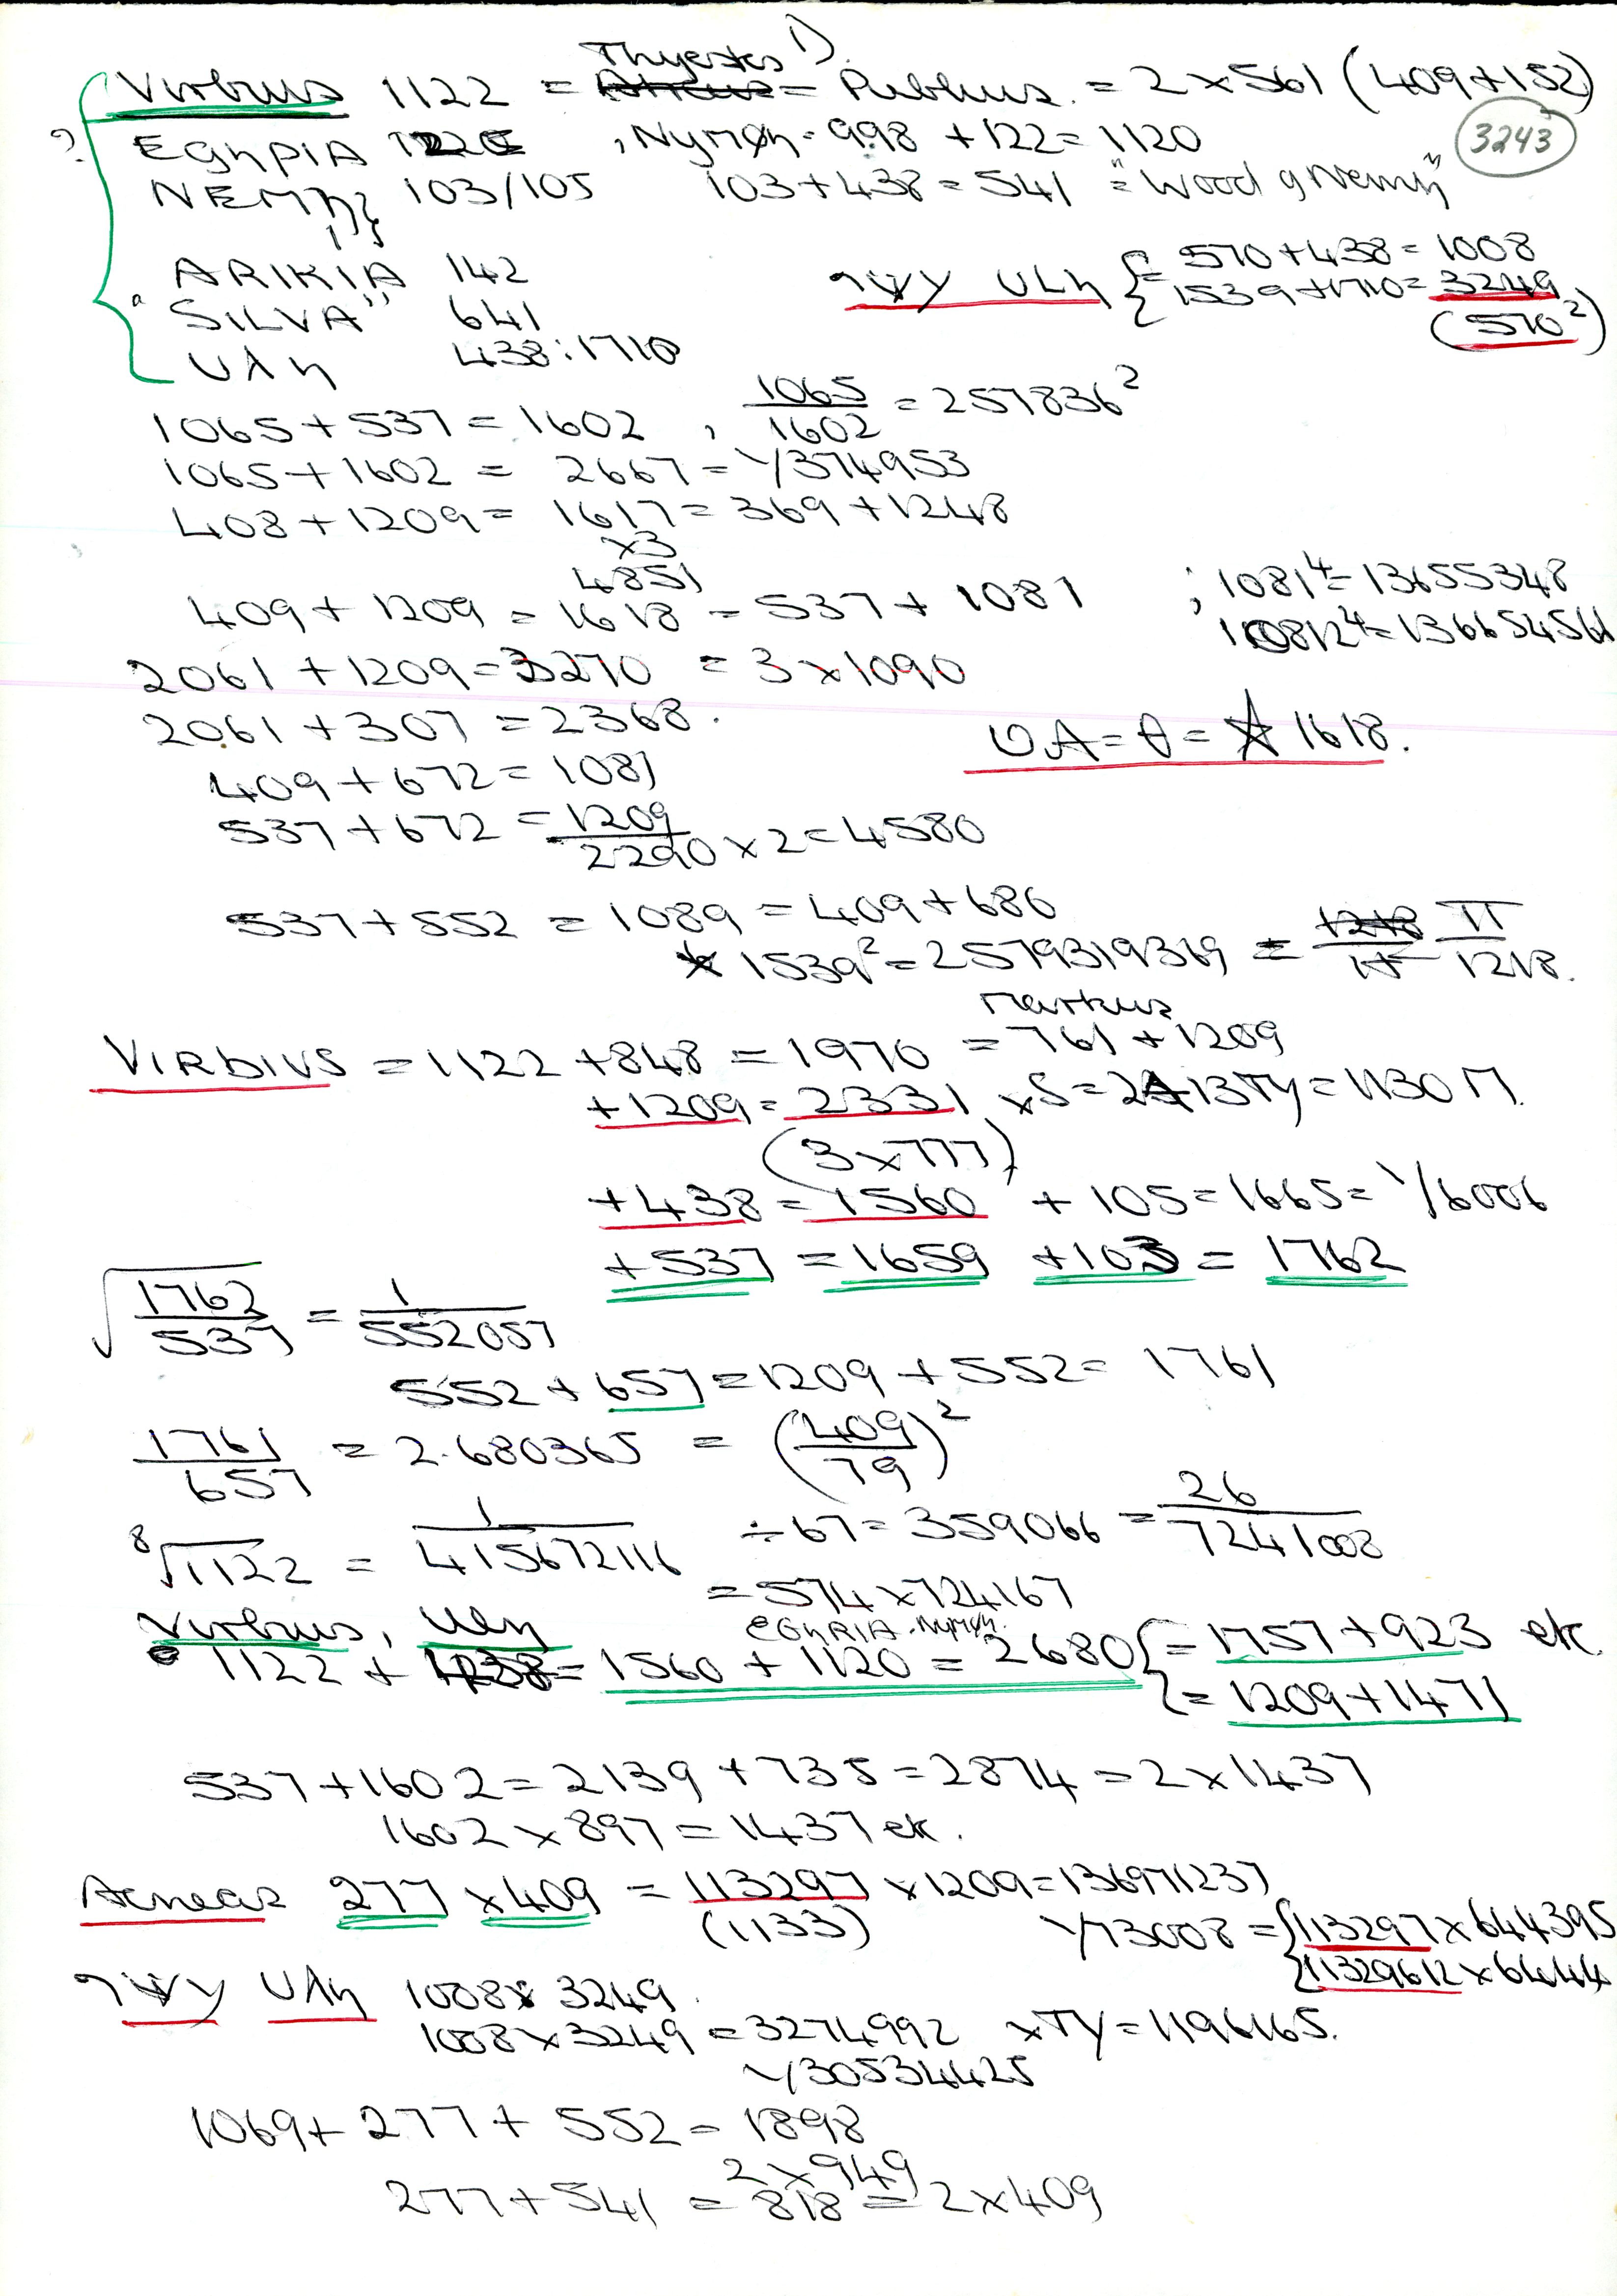 Thyestes 1)
Virbius 1122 = = Publius. = 2 x 561 (409+152)
3243
? EGηPIA 122 , Nymph = 998 + 122 = 1120
NEMη 103/105 103 + 438 = 541 = "Wood of Nemη"
ARIKIA 142
570 + 438 = 1008
"SILVA" 641
Uλη { = 1539 + 1710 = 3249
(570²)
Uλη 438 : 1710
1065 + 537 = 1602 , 1065/1602 = 257836²
1065 + 1602 = 2667 = 1/374953
408 + 1209 = 1617 = 369 + 1248
x3
4851
409 + 1209 = 1618 = 537 + 1081 ; 1081⁴ = 13655348
10812⁴ = 136654561
2061 + 1209 = 3270 = 3 x 1090
2061 + 307 = 2368.
1618.
409 + 672 = 1081
537 + 672 = 1209
2290 x 2 = 4580
537 + 552 = 1089 = 409 + 680
1539² = 2579319369 = π/1218.
Markus
VIRBIUS = 1122 + 848 = 1970 = 761 + 1209
+ 1209 = 2331 x 5 = 13Ty = 1130Π.
(3 x 777)
+ 438 = 1560 + 105 = 1665 = 1/6006
+ 537 = 1659 + 103 = 1762
√1762/537 = 1/552057
552 + 657 = 1209 + 552 = 1761
1761/657 = 2.680365 = (409/79)²
⁸√1122 = 1/415672116 ÷ 67 = 359066 = 26/7241008
= 574 x 724167
Virbius, Uλη EGηRIA. Nymph.
1122 + 438 = 1560 + 1120 = 2680 { = 1757 + 923 etc.
{ = 1209 + 1471
537 + 1602 = 2139 + 735 = 2874 = 2 x 1437
1602 x 897 = 1437 etc.
Aeneas 277 x 409 = 113297 x 1209 = 136971237
(1133) 1/73008 = { 113297 x 644395
{ 11329612 x 6444
Uλη 1008 x 3249.
1008 x 3249 = 3274992 x Ty = 1196165.
1/30534425
1069 + 277 + 552 = 1898
2 x 949
277 + 541 = 818 = 2 x 409